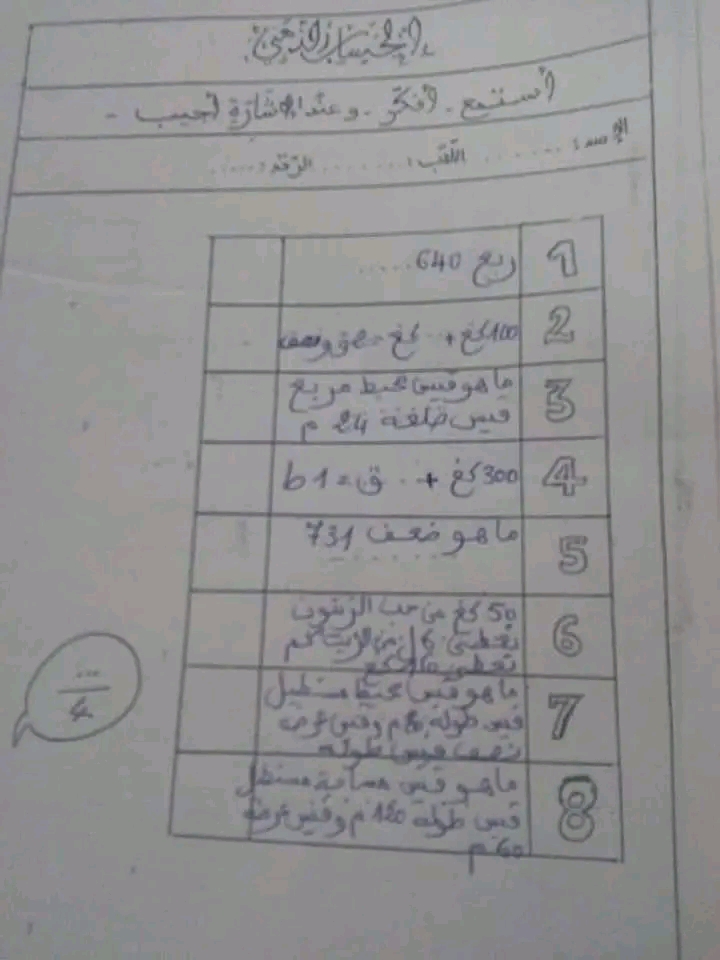 الحساب الذهني
أستمع - أفكّر - وعند الإشارة أجيب -
الإسم: ........ اللّقب: ........ الرّقم: ......
1 ربع 640 .....
2 100 كغ + ... كغ = 2 ق ونصف
3 ما هو قيس محيط مربع
قيس ضلعه 24 م
4 300 كغ + .. ق = 1 ط
5 ما هو ضعف 731
........
6 50 كغ من حب الزيتون
تعطي 6 ل من الزيت كم
تعطي كغ
7 ما هو قيس محيط مستطيل
قيس طوله م وقيس عرضه
نصف قيس طوله
8 ما هو قيس مساحة مستطيل
قيس طوله 120 م وقيس عرضه
60 م
...
4